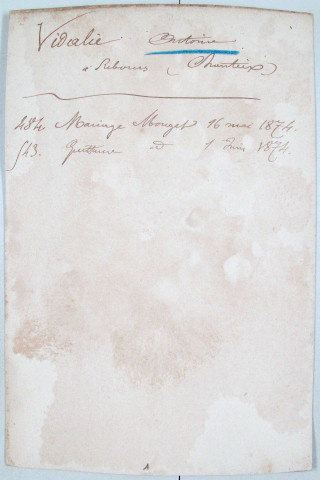 Vidalie Antoine
à Rebours (Chanteix)
484. Mariage Mouzet 16 mai 1874.
543. Quittance d 1 Juin 1874.